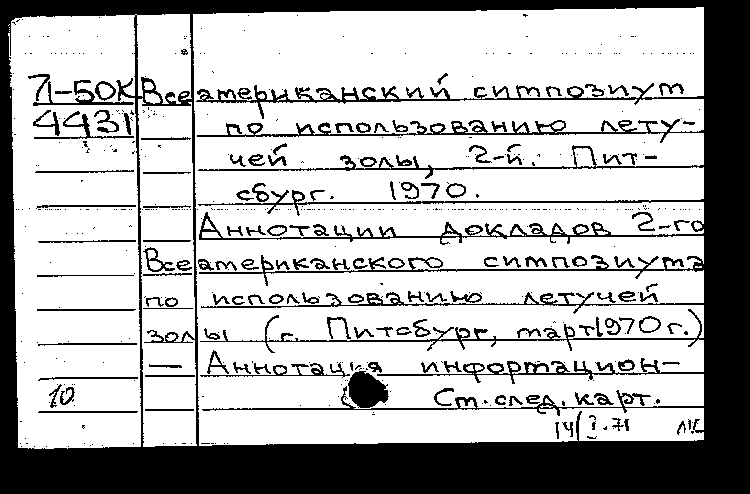 71-50К Всеамериканский симпозиум
4431 по использованию лету-
чей золы, 2-й. Пит-
сбург. 1970.
Аннотации докладов 2-го
Всеамериканского симпозиума
по использованию летучей
золы (г. Питсбург, март 1970 г.)
— Аннотация информацион-
10 Ст. след. карт.
14/I-71